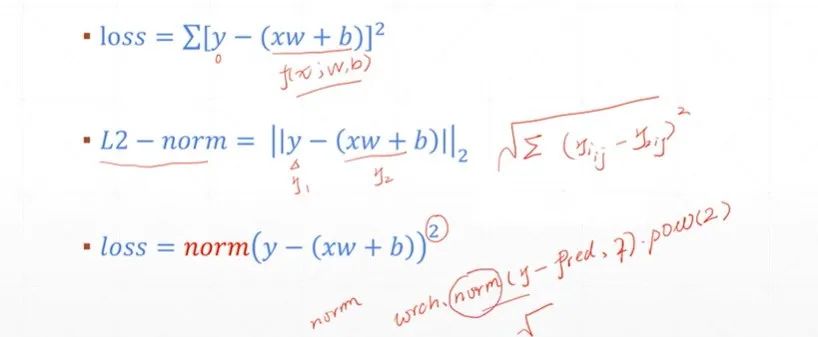 ▪ loss = ∑[y − (xw + b)]²
f(x; w, b)
▪ L2 − norm = ||y − (xw + b)||₂ √∑ (y₁ᵢⱼ − y₂ᵢⱼ)²
y₁ y₂
▪ loss = norm(y − (xw + b))²
norm torch.norm(y − pred, 2).pow(2)
√